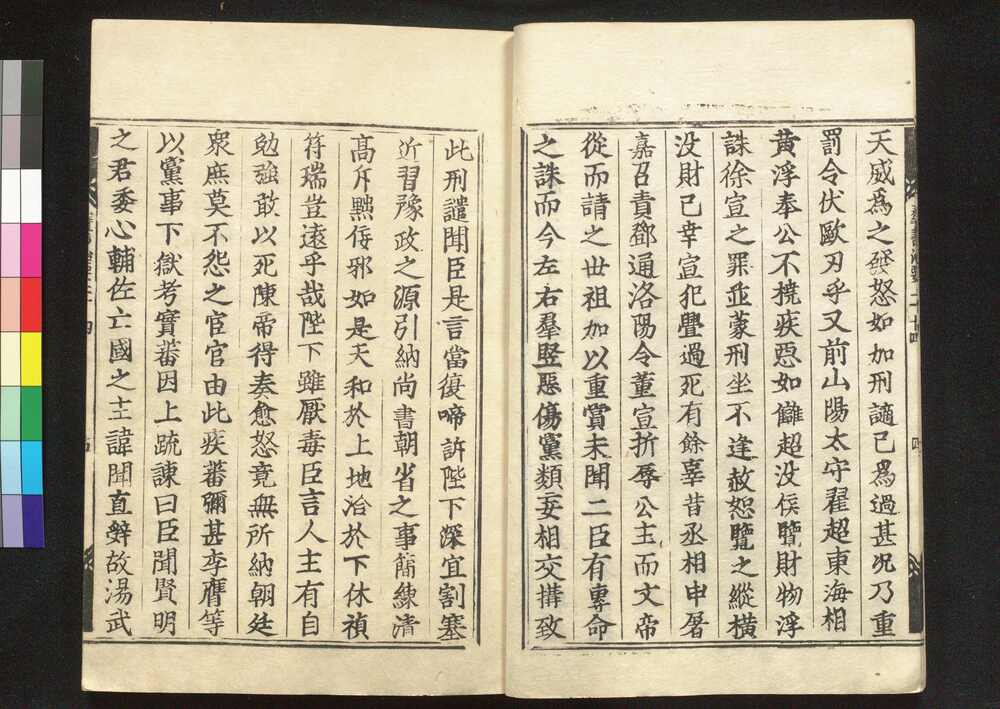 天威爲之發怒如加刑讁已爲過甚况乃重
罰令伏歐刃乎又前山陽太守翟超東海相
黄浮奉公不撓疾惡如讎超没侯覽財物浮
誅徐宣之罪並蒙刑坐不逢赦恕覽之縱橫
没財已幸宣犯舋過死有餘辜昔丞相申屠
嘉召責鄧通洛陽令董宣折辱公主而文帝
從而請之世祖加以重賞未聞二臣有專命
之誅而今左右羣竪惡傷黨類妄相交搆致
此刑譴聞臣是言當復啼訴陛下深宜割塞
近習豫政之源引納尚書朝省之事簡練清
髙斥黜佞邪如是天和於上地洽於下休禎
符瑞豈遠乎哉陛下雖厭毒臣言人主有自
勉強敢以死陳帝得奏愈怒竟無所納朝廷
衆庶莫不怨之官官由此疾蕃彌甚李膺等
以黨事下獄考實蕃因上疏諌曰臣聞賢明
之君委心輔佐亡國之主諱聞直辤故湯武